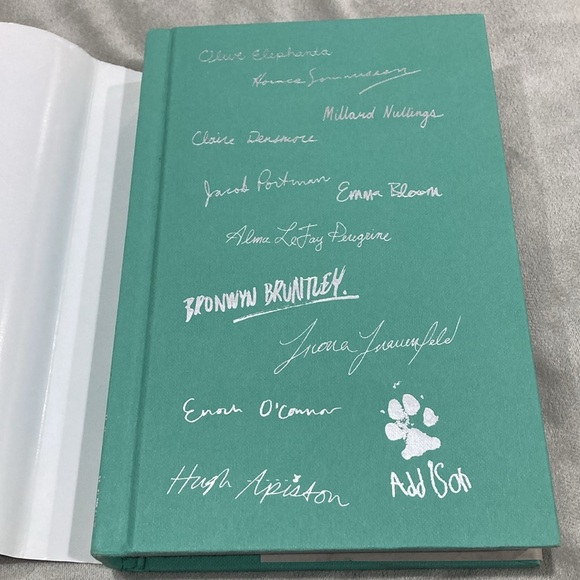 Olive Elephanta
Horace Somnusson
Millard Nullings
Claire Densmore
Jacob Portman
Emma Bloom
Alma LeFay Peregrine
BRONWYN BRUNTLEY.
Fiona Frauenfeld
Enoch O'Connor
Hugh Apiston
Addison